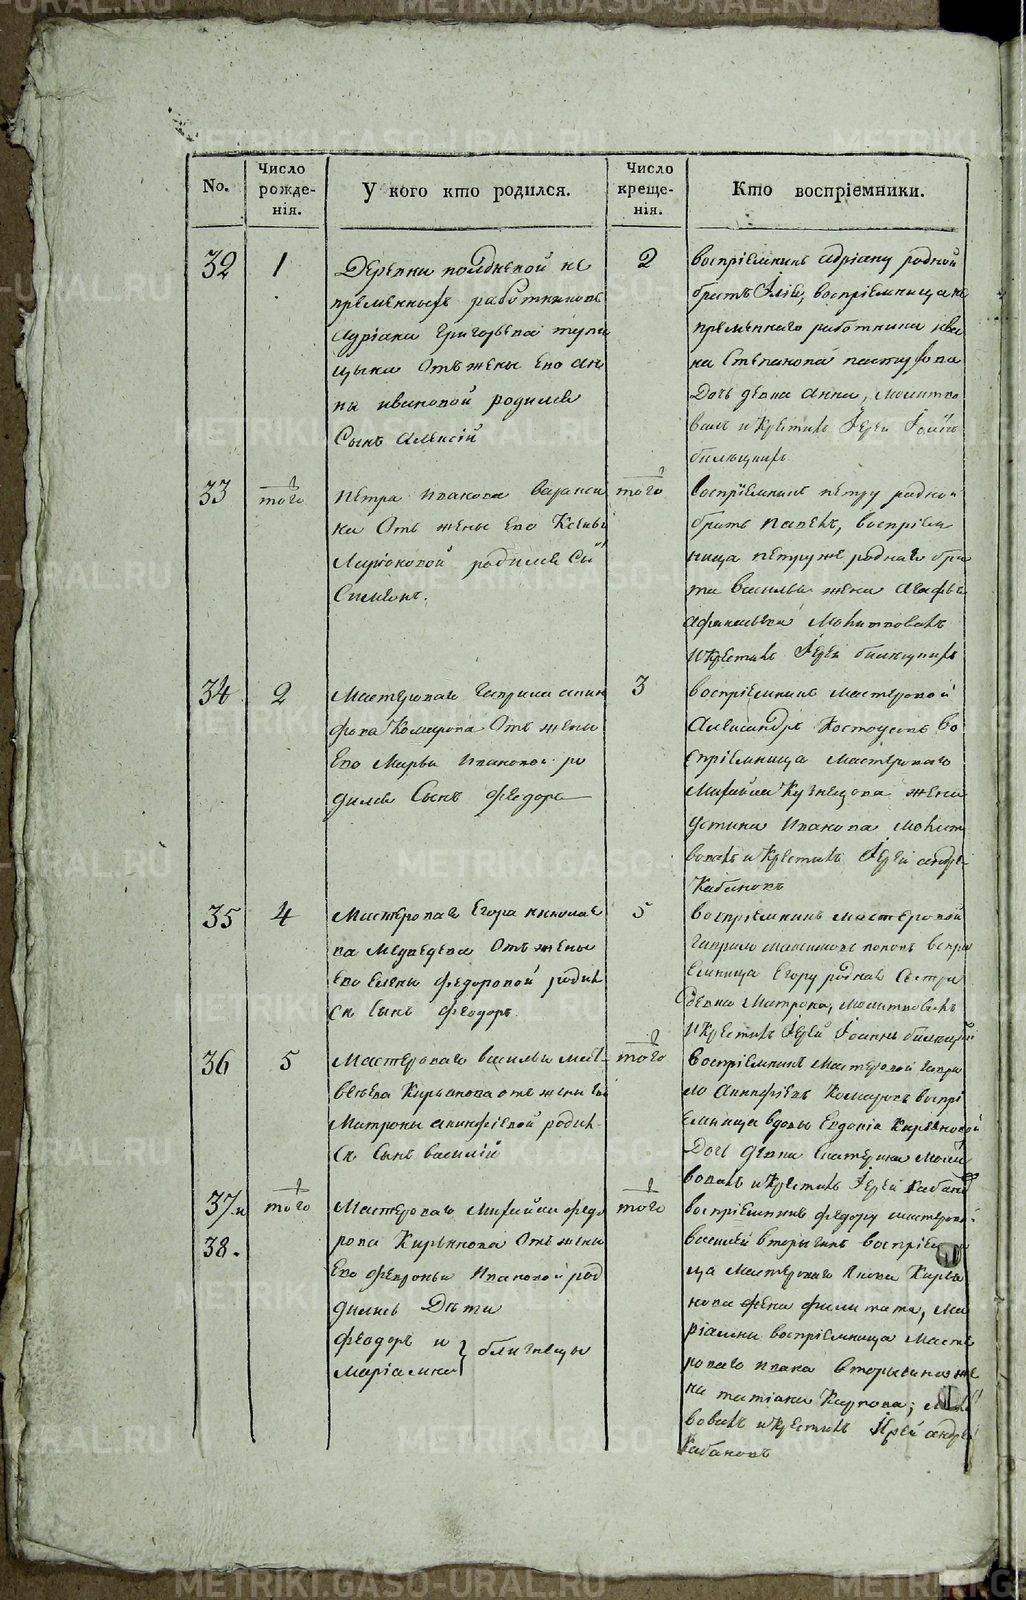 No.
Число рожде-нія.
У кого кто родился.
Число креще-нія.
Кто воспріемники.
32
1
Деревни
не
пременныхъ работниковъ
Адріана Григорьева
Отъ жены Его Ан
ны Ивановой родился
Сынъ Алексій
2
воспріемникъ Адріану родной
братъ Илія, воспріемница не
пременнаго работника Ива
на Степанова пастухова
Дочь девка Анна, молитво
валъ и Крестилъ Іерей Іоаннъ
33
того
Петра Иванова
Отъ жены Его Ксеньи
Ларіоновой родился Сы
Симеонъ.
того
воспріемникъ петру родной
братъ Павелъ, воспріем
ница петру же роднаго бра
та Василья жена Агафья
Афанасьева Молитвовалъ
и Крестилъ Іерей
34
2
Мастероваго Гаврила Анки
фова Комарова Отъ жены
Его Марьи Ивановой ро
дился Сынъ Феодоръ
3
воспріемникъ мастеровой
Александръ Костоусовъ во
спріемница мастероваго
Михайла Кузнецова жена
Устина Иванова молит
вовалъ и Крестилъ Іерей Андрей
Кабановъ
35
4
Мастероваго Егора Николае
ва Медведева Отъ жены
Его Елены Федоровой родил
ся Сынъ Феодоръ.
5
воспріемникъ мастеровой
Гаврило Максимовъ поповъ воспрі
емница Егору родная Сестра
Девка Матрона, молитвовалъ
и Крестилъ Іерей Іоаннъ
36
5
Мастероваго Василья Мат
веева Кирьянова отъ жены Его
Матроны Анкифіевой родил
ся Сынъ василій
того
воспріемникъ мастеровой Гаври
ло Анкифіевъ Комаровъ воспрі
емница вдовы Евдокіи Кирьяновой
Дочь девка Екатерина молит
вовалъ и Крестилъ Іерей Кабановъ
37 и
38.
того
Мастероваго Михайла Федо
рова Кирьянова Отъ жены
Его Февроньи Ивановой род
дились Дети
Феодоръ и
Маріамна
} близнецы
того
воспріемникъ Федору мастеровой
василей вторыгинъ воспріемни
ца Мастероваго Якова Кирья
нова жена филитата, Ма
ріамны воспріемница Масте
роваго Ивана вторыгина же
на татіана Карпова; молит
вовалъ и Крестилъ Іерей Андрей
Кабановъ
METRIKI.GASO-URAL.RU